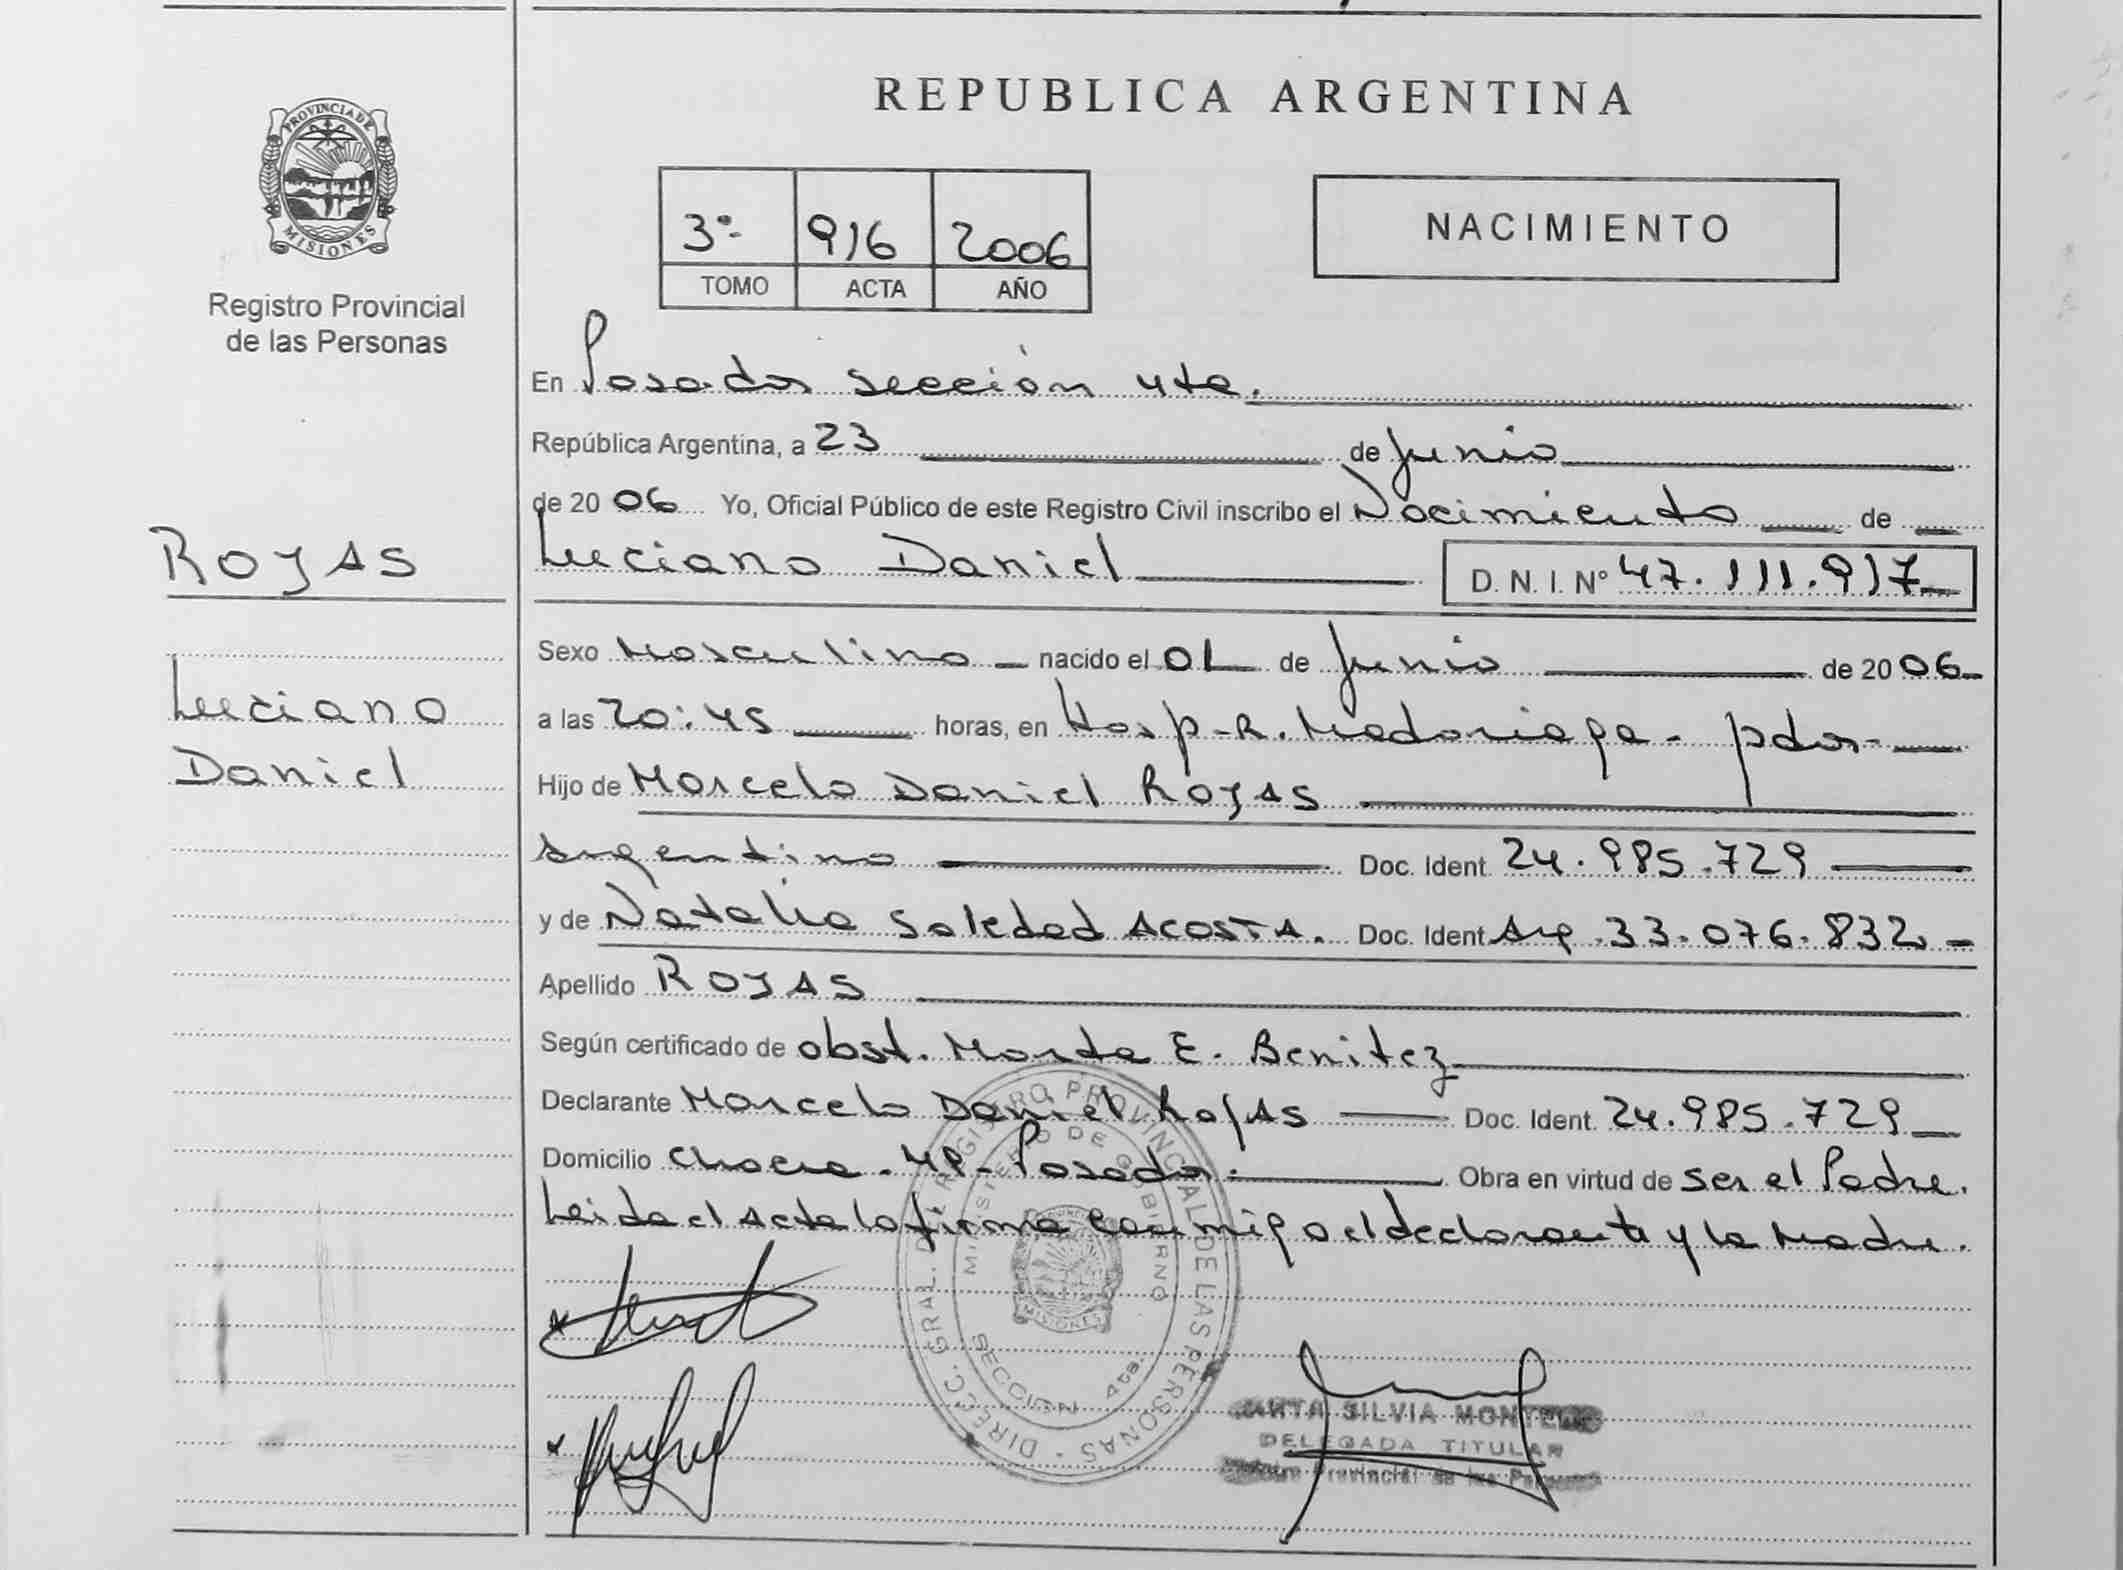 REPUBLICA ARGENTINA
PROVINCIA DE MISIONES
Registro Provincial
de las Personas
3º- 916 2006
TOMO ACTA AÑO
NACIMIENTO
En Posadas sección 4ta.
República Argentina, a 23 de Junio
de 2006 Yo, Oficial Público de este Registro Civil inscribo el Nacimiento de
ROJAS
Luciano Daniel
D. N. I. Nº 47.111.917
Sexo Masculino nacido el 01 de Junio de 2006
Luciano
Daniel
a las 20:45 horas, en Hosp. R. Madariaga - pdas-
Hijo de Marcelo Daniel ROJAS
Argentino Doc. Ident. 24.985.729
y de Natalia Soledad ACOSTA. Doc. Ident Arg. 33.076.832
Apellido ROJAS
Según certificado de obst. Marta E. Benitez
Declarante Marcelo Daniel Rojas Doc. Ident. 24.985.729
Domicilio Chacra - Posadas. Obra en virtud de ser el Padre.
Leida el Acta la firma conmigo el declarante y la Madre.
DIRECC. GRAL. DE REGISTRO PROVINCIAL DE LAS PERSONAS
MINISTERIO DE GOBIERNO
MISIONES
SECCION 4ta.
SILVIA
DELEGADA TITULAR
Provincial de las